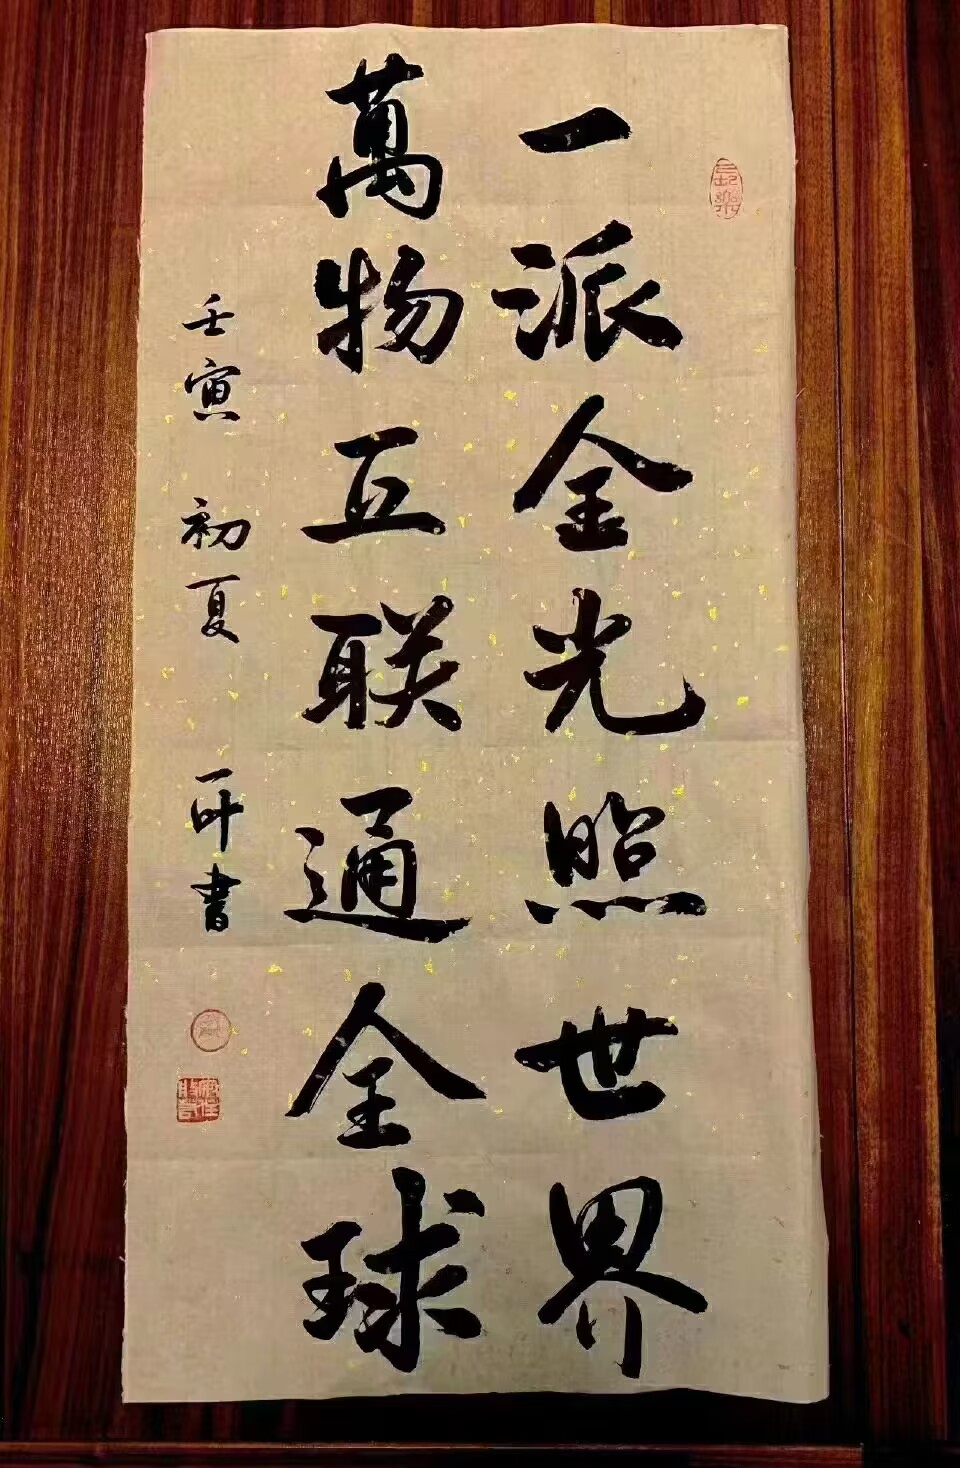 一派金光照世界
萬物互联通全球
壬寅 初夏 一叶書
長樂